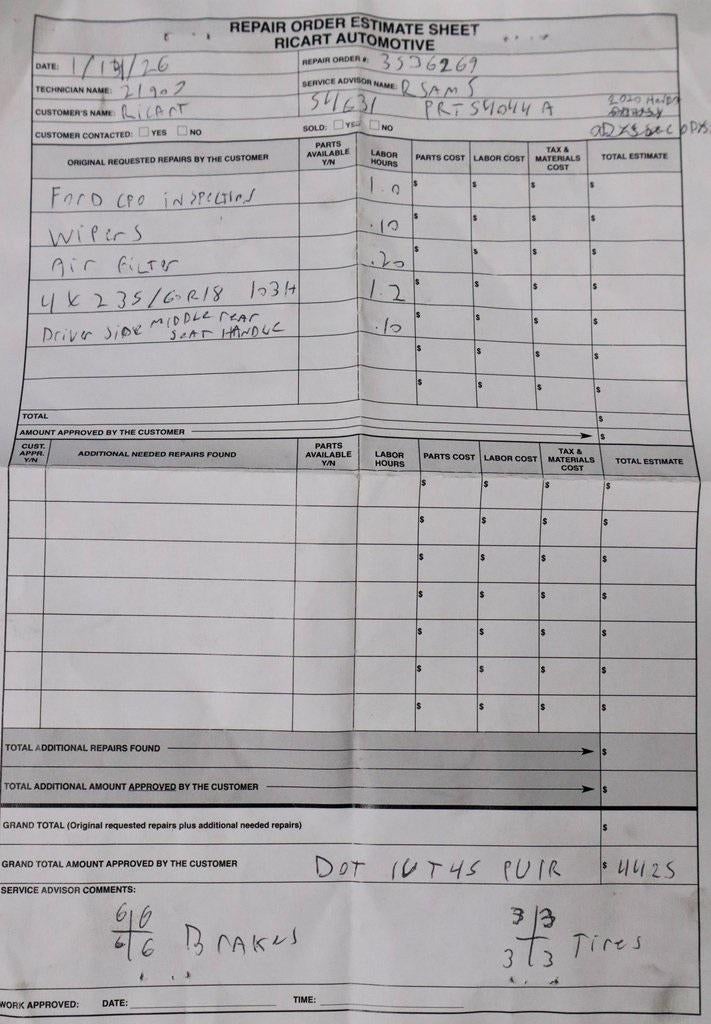 REPAIR ORDER ESTIMATE SHEET
RICART AUTOMOTIVE
DATE: 1/ /26 REPAIR ORDER #: 3536269
TECHNICIAN NAME: 21902 SERVICE ADVISOR NAME: R SAMS
CUSTOMER'S NAME: RICART 54631 PRTS4044A 2020 HONDA
CUSTOMER CONTACTED: YES NO SOLD: YES NO ODYSSEC
ORIGINAL REQUESTED REPAIRS BY THE CUSTOMER PARTS AVAILABLE Y/N LABOR HOURS PARTS COST LABOR COST TAX & MATERIALS COST TOTAL ESTIMATE
FORD CPO INSPECTION 1.0 $ $ $ $
WIPERS .10 $ $ $ $
AIR FILTER .20 $ $ $ $
4 X 235/60R18 103H 1.2 $ $ $ $
DRIVER SIDE MIDDLE REAR SEAT HANDLE .10 $ $ $ $
$ $ $ $
$ $ $ $
TOTAL $
AMOUNT APPROVED BY THE CUSTOMER $
CUST. APPR. Y/N ADDITIONAL NEEDED REPAIRS FOUND PARTS AVAILABLE Y/N LABOR HOURS PARTS COST LABOR COST TAX & MATERIALS COST TOTAL ESTIMATE
$ $ $ $
$ $ $ $
$ $ $ $
$ $ $ $
$ $ $ $
$ $ $ $
$ $ $ $
TOTAL ADDITIONAL REPAIRS FOUND $
TOTAL ADDITIONAL AMOUNT APPROVED BY THE CUSTOMER $
GRAND TOTAL (Original requested repairs plus additional needed repairs) $
GRAND TOTAL AMOUNT APPROVED BY THE CUSTOMER DOT 1UT45 PU1R $ 4425
SERVICE ADVISOR COMMENTS:
6 6 3 3
6 6 BRAKES 3 3 TIRES
WORK APPROVED: DATE: TIME: